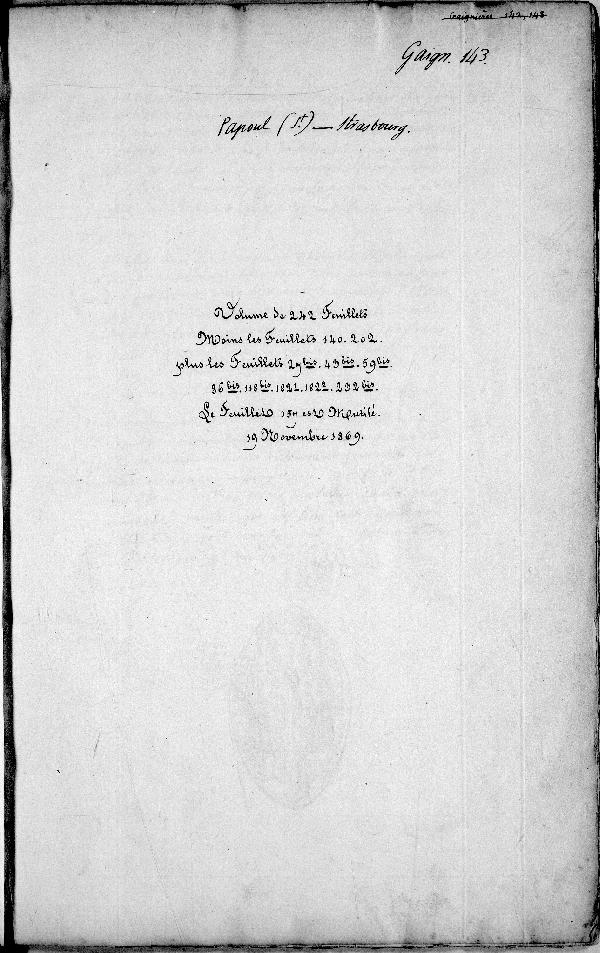 Gaignières 142, 143
Gaign. 143.
Papoul (St) — Strasbourg.
Volume de 242 Feuillets
Moins les Feuillets 140. 202.
plus les Feuillets 27 bis. 43 bis. 59 bis.
86 bis. 118 bis. 182 1. 182 2. 232 bis.
Le Feuillet est Mutilé.
19 Novembre 1869.